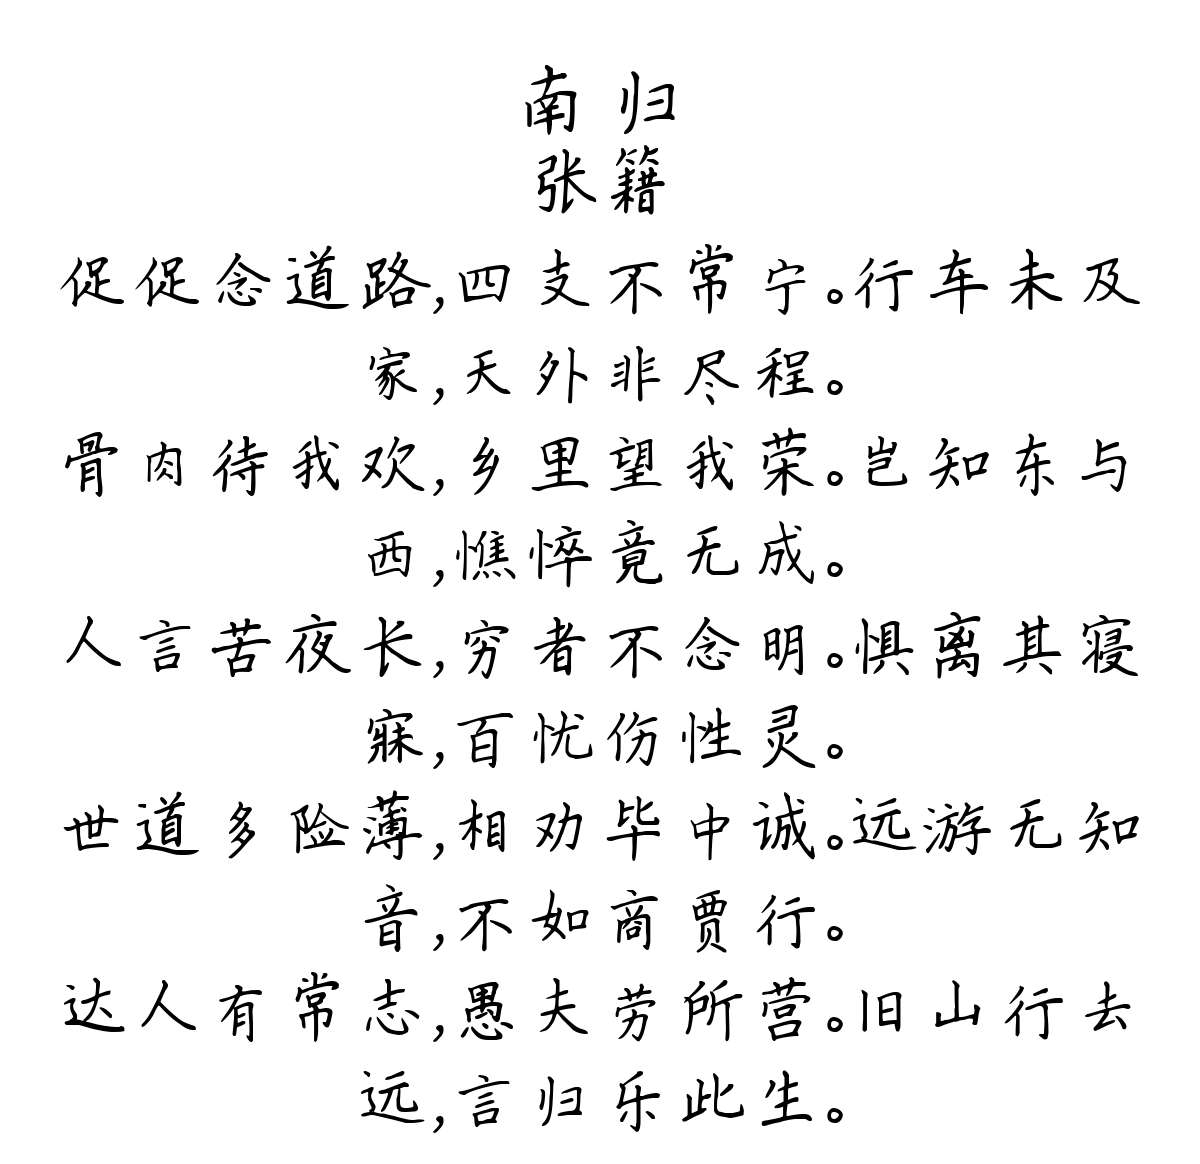 南归
张籍
促促念道路,四支不常宁。行车未及
家,天外非尽程。
骨肉待我欢,乡里望我荣。岂知东与
西,憔悴竟无成。
人言苦夜长,穷者不念明。惧离其寝
寐,百忧伤性灵。
世道多险薄,相劝毕中诚。远游无知
音,不如商贾行。
达人有常志,愚夫劳所营。旧山行去
远,言归乐此生。